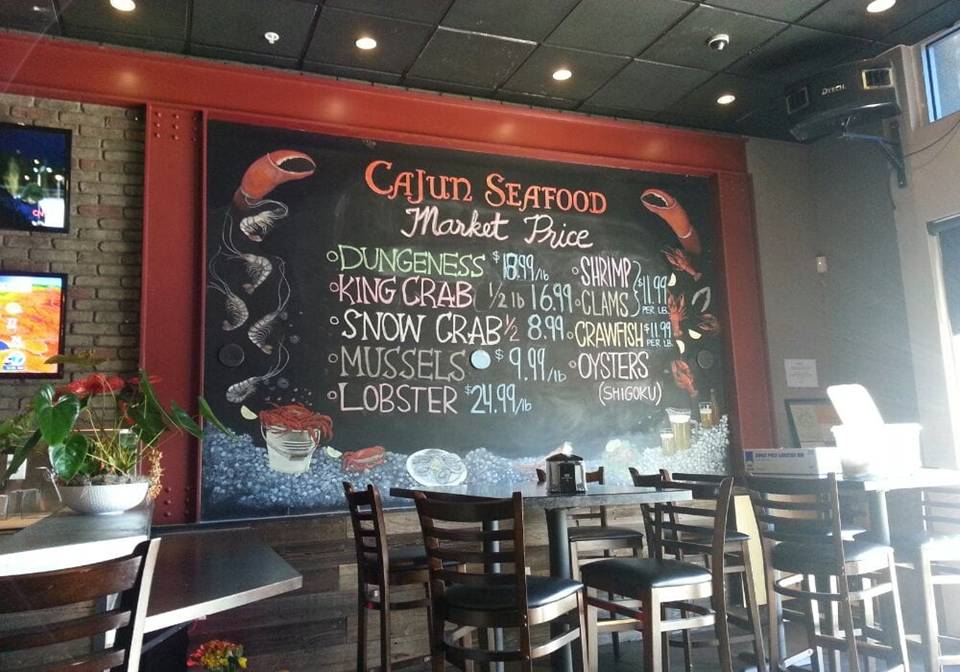 CAJUN SEAFOOD
Market Price
DUNGENESS $18.99/lb
KING CRAB 1/2 lb 16.99
SNOW CRAB 1/2 8.99
MUSSELS $9.99/lb
LOBSTER $24.99/lb
SHRIMP
CLAMS
$11.99
PER LB.
CRAWFISH $11.99
PER LB.
OYSTERS
(SHIGOKU)